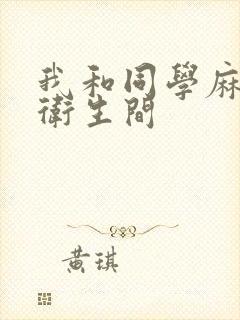 我和同學麻
衛生間
黃琪